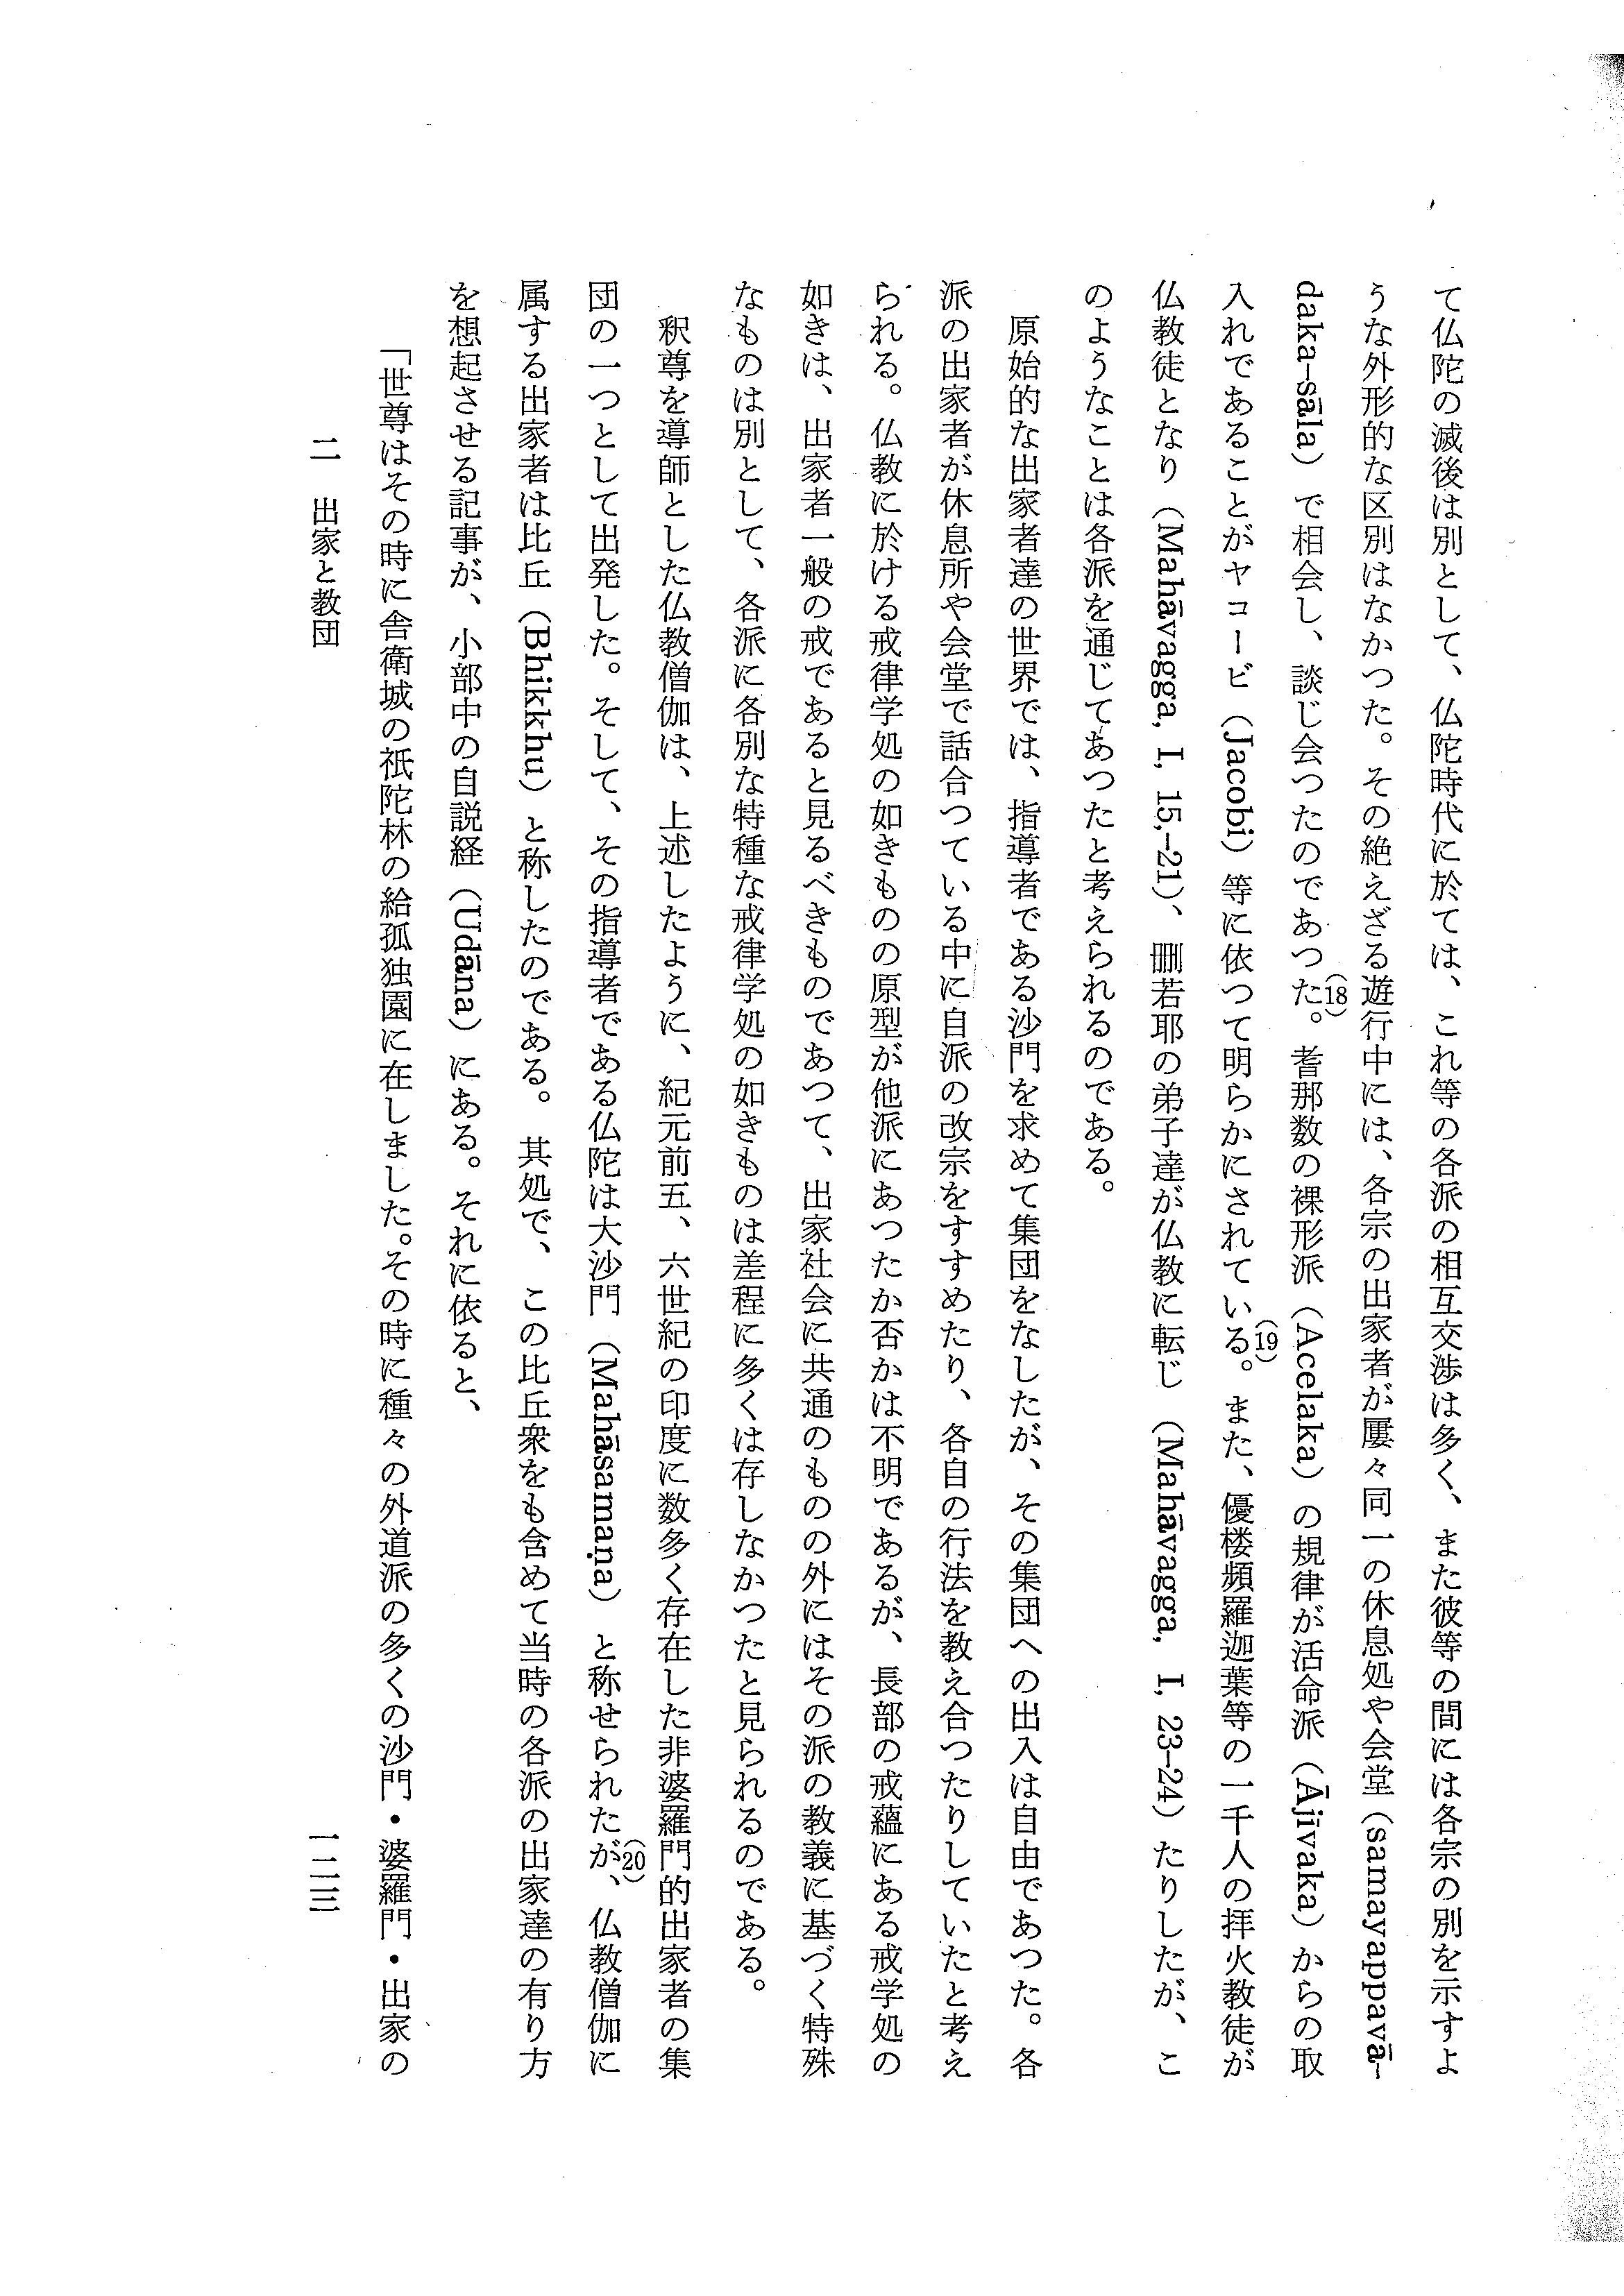 て仏陀の滅後は別として、仏陀時代に於ては、これ等の各派の相互交渉は多く、また彼等の間には各宗の別を示すよ
うな外形的な区別はなかつた。その絶えざる遊行中には、各宗の出家者が屢々同一の休息処や会堂(samayappavā-
daka-sāla)で相会し、談じ会つたのであつた(18)。耆那数の裸形派(Acelaka)の規律が活命派(Ājīvaka)からの取
入れであることがヤコービ(Jacobi)等に依つて明らかにされている(19)。また、優楼頻羅迦葉等の一千人の拝火教徒が
仏教徒となり(Mahāvagga, I, 15,-21)、删若耶の弟子達が仏教に転じ(Mahāvagga, I, 23-24)たりしたが、こ
のようなことは各派を通じてあつたと考えられるのである。
原始的な出家者達の世界では、指導者である沙門を求めて集団をなしたが、その集団への出入は自由であつた。各
派の出家者が休息所や会堂で話合つている中に自派の改宗をすすめたり、各自の行法を教え合つたりしていたと考え
られる。仏教に於ける戒律学処の如きものの原型が他派にあつたか否かは不明であるが、長部の戒蘊にある戒学処の
如きは、出家者一般の戒であると見るべきものであつて、出家社会に共通のものの外にはその派の教義に基づく特殊
なものは別として、各派に各別な特種な戒律学処の如きものは差程に多くは存しなかつたと見られるのである。
釈尊を導師とした仏教僧伽は、上述したように、紀元前五、六世紀の印度に数多く存在した非婆羅門的出家者の集
団の一つとして出発した。そして、その指導者である仏陀は大沙門(Mahāsamaṇa)と称せられたが(20)、仏教僧伽に
属する出家者は比丘(Bhikkhu)と称したのである。其処で、この比丘衆をも含めて当時の各派の出家達の有り方
を想起させる記事が、小部中の自説経(Udāna)にある。それに依ると、
「世尊はその時に舎衛城の祇陀林の給孤独園に在しました。その時に種々の外道派の多くの沙門・婆羅門・出家の
二 出家と教団
一二三